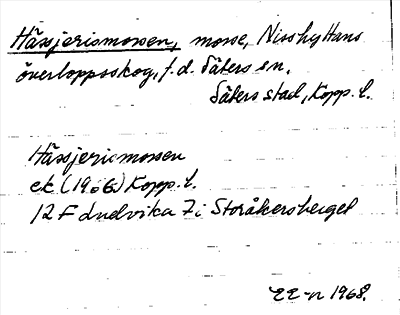 Hässjerismossen, mosse, Nisshyttans
överloppsskog, f.d. Säters sn,
Säters stad, Kopp. l.
Hässjerismossen
ek (1966) Kopp. l.
12 F Ludvika 7 i Storåkersberget
EE-n 1968.